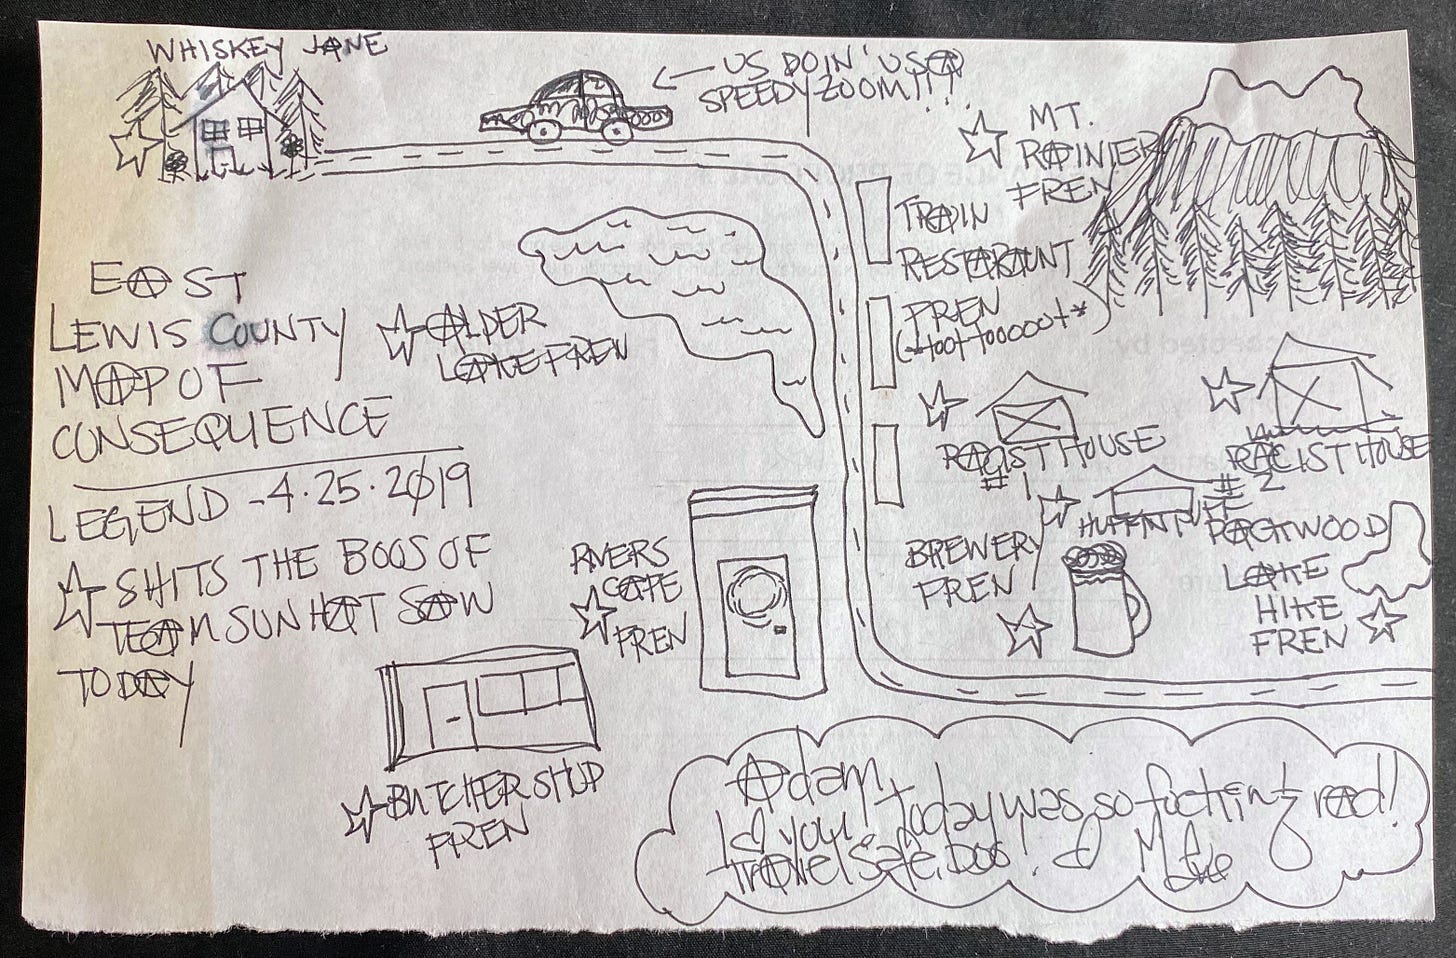 WHISKEY JANE
US DOIN' US @
SPEEDY ZOOM!!!!
MT.
RAINIER
FREN
TRAIN
RESTARAUNT
FREN
(*toot toooot*)
EAST
LEWIS COUNTY
MAP OF
CONSEQUENCE
ALDER
LAKE FREN
LEGEND - 4.25.2019
SHITS THE BOOS OF
TEAM SUN HAT SAW
TODAY
RACIST HOUSE
#1
RACIST HOUSE
#2
HUFFIN PUFF
BREWERY
FREN
PACKWOOD
LAKE
HIKE
FREN
RIVERS
CAFE
FREN
BUTCHER SHOP
FREN
Adam,
I <3 you! today was so fucking rad!
Travel safe, Boo! <3 M